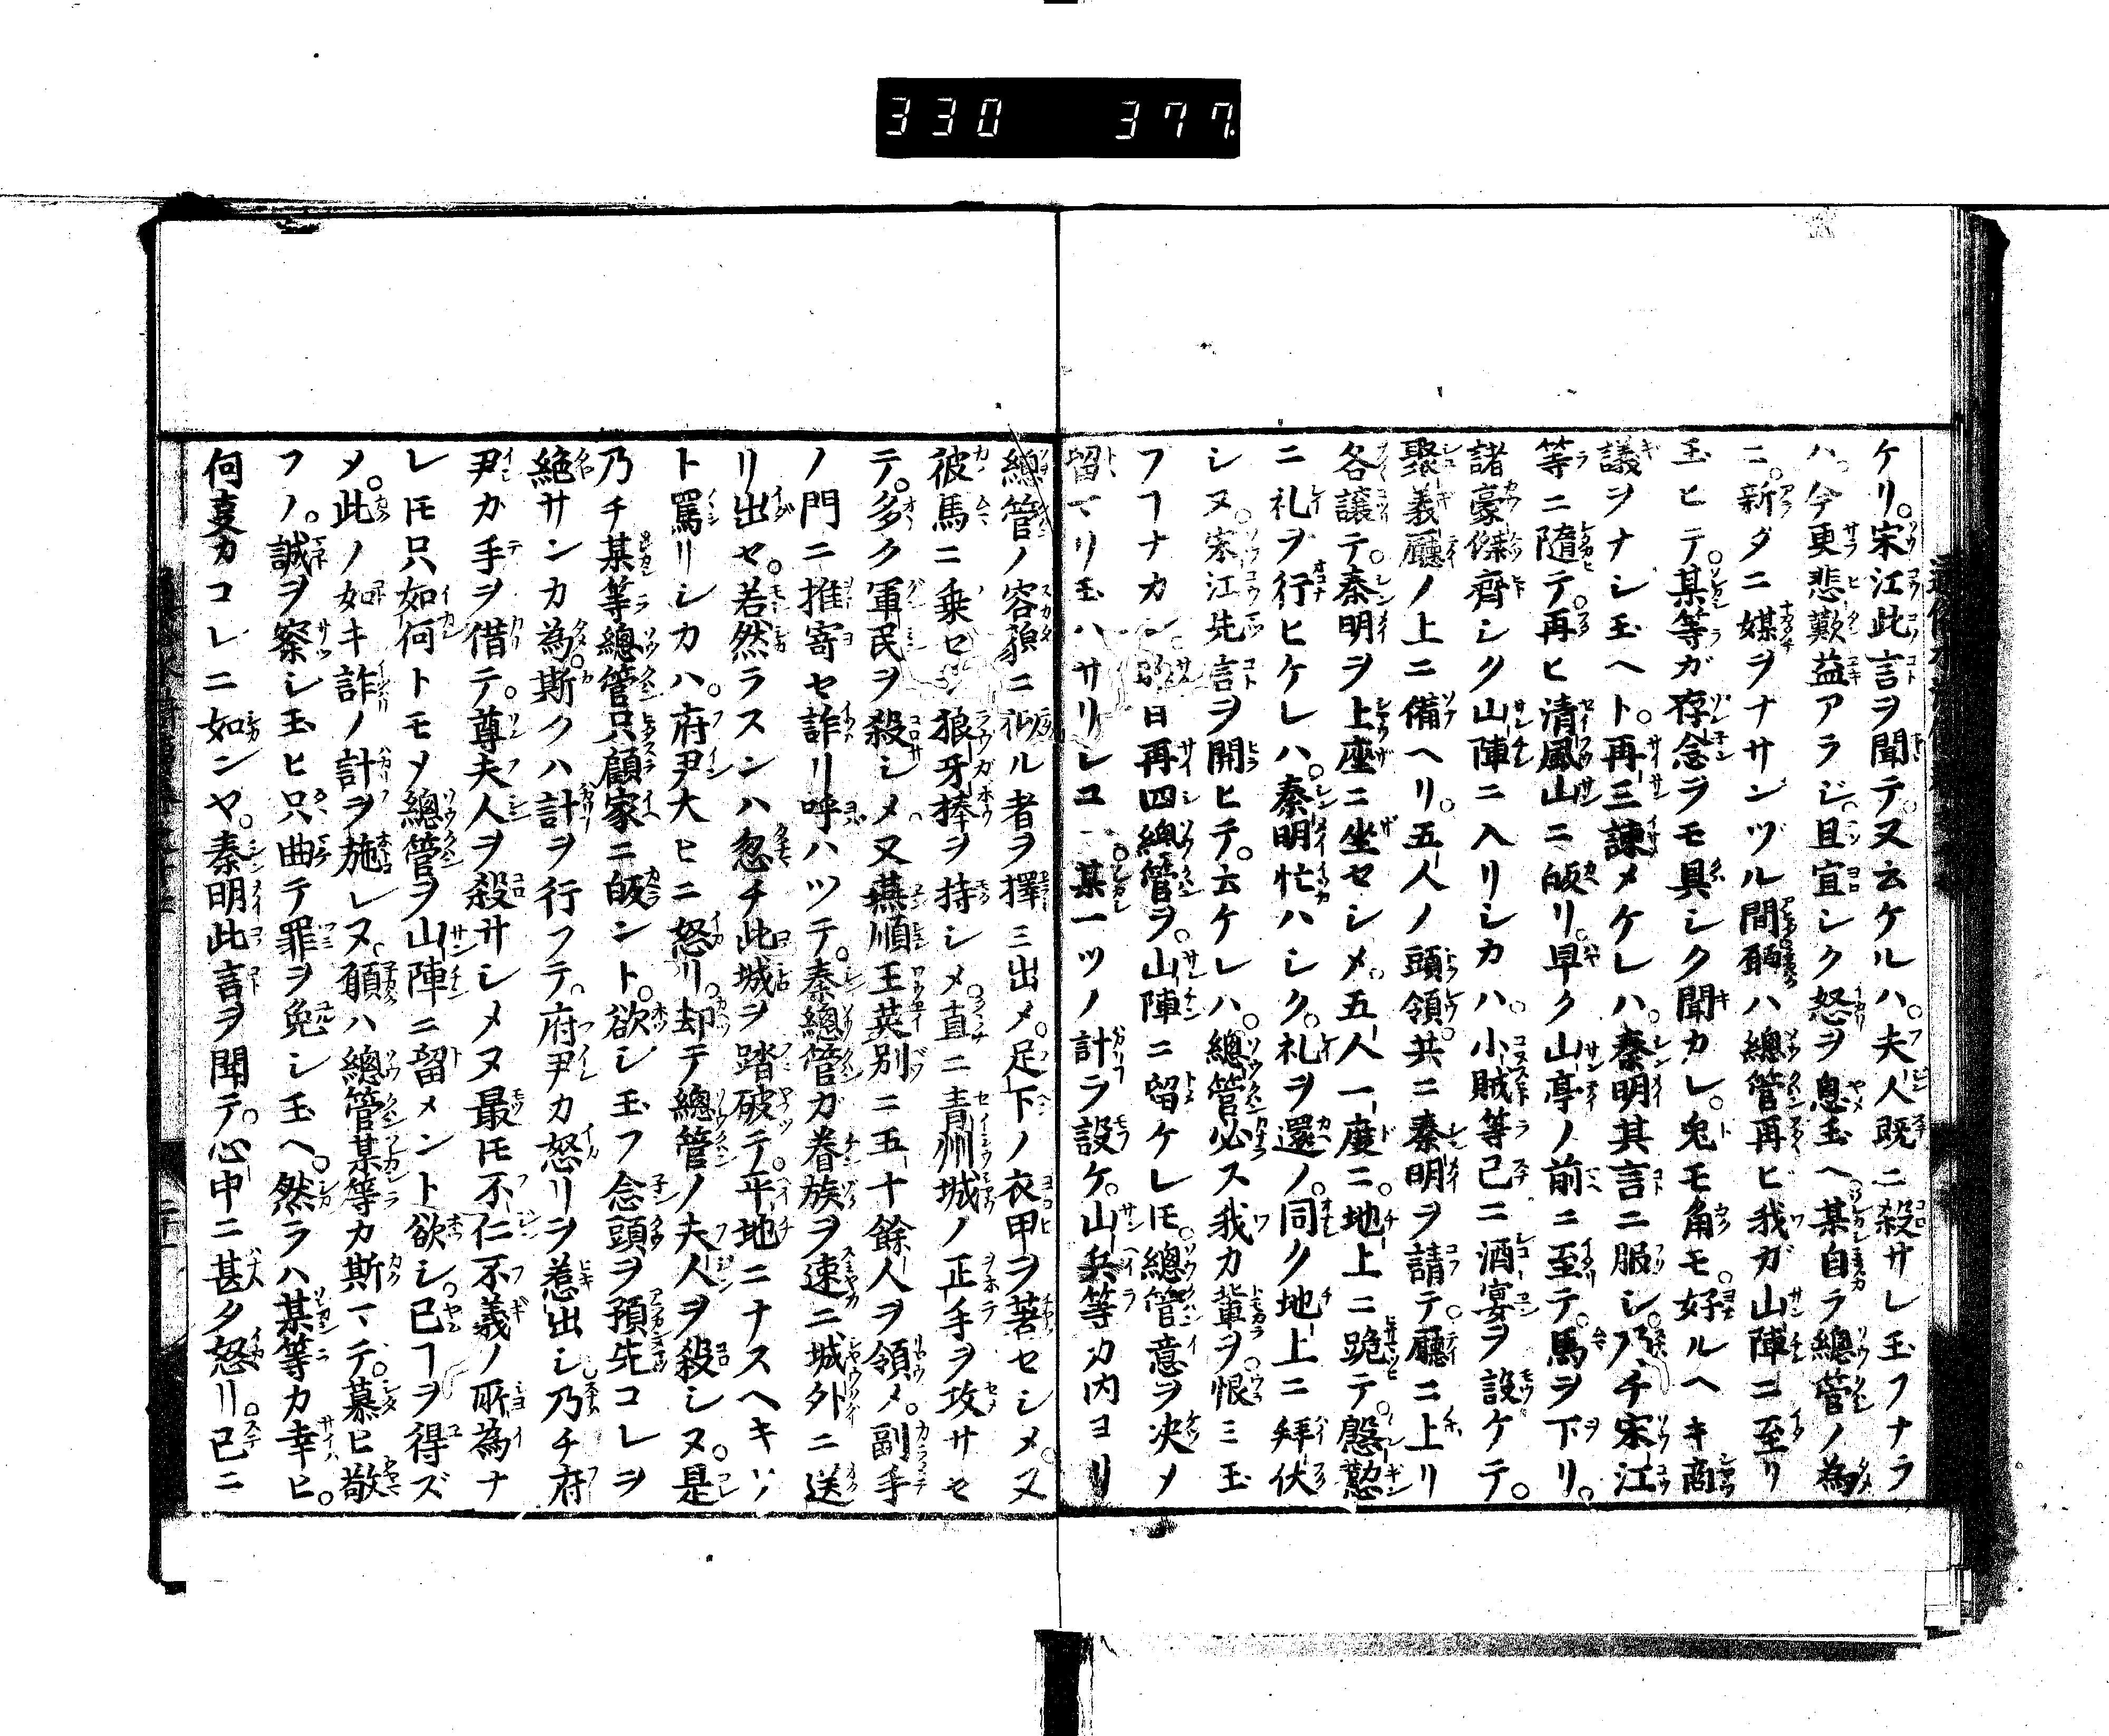 330 377.
ケリ。宋江此言ヲ聞テ。又云ケルハ。夫人既ニ殺サレ玉フナラ
ハ。今更悲歎益アラジ。且宜シク怒ヲ息玉ヘ。某自ラ總管ノ為
ニ。新ダニ媒ヲナサンヅル間。願ハ總管再ビ我ガ山陣ニ至リ
玉ヒテ。某等ガ存念ヲモ具シク聞カレ。兎モ角モ。好ルヘキ商
議ヲナシ玉ヘト。再三諫メケレハ。秦明其言ニ服シ。乃チ宋江
等ニ隨テ。再ヒ清風山ニ皈リ。早ク山亭ノ前ニ至テ。馬ヲ下リ。
諸豪傑齊シク山陣ニ入リシカハ。小賊等已ニ酒宴ヲ設ケテ。
聚義廳ノ上ニ備ヘリ。五人ノ頭領。共ニ秦明ヲ請テ。廳ニ上リ
各讓テ。秦明ヲ上座ニ坐セシメ。五人一度ニ。地上ニ跪テ。慇懃
ニ礼ヲ行ヒケレハ。秦明忙ハシク。礼ヲ還ノ。同ク地上ニ拜伏
シヌ。宋江先言ヲ開ヒテ。云ケレハ。總管必ス我カ輩ヲ。恨ミ玉
フヿナカレ。昨日再四總管ヲ。山陣ニ留ケレㇳモ。總管意ヲ决メ
留マリ玉ハサリレユ。某一ツノ計ヲ設ケ。山兵等カ内ヨリ
總管ノ容貌ニ似ル者ヲ擇ミ出メ。足下ノ衣甲ヲ著セシメ。又
彼馬ニ乗ヒ。狼牙捧ヲ持シメ。直ニ青州城ノ正手ヲ攻サセ
テ。多ク軍民ヲ殺シメ。又燕順王英別ニ五十餘人ヲ領メ。副手
ノ門ニ推寄セ詐リ呼ハツテ。秦總管ガ眷族ヲ速ニ城外ニ送
リ出セ。若然ラスンハ忽チ此城ヲ踏破テ。平地ニナスヘキソ
ト罵リシカハ。府尹大ヒニ怒リ。却テ總管ノ夫人ヲ殺シヌ。是
乃チ某等總管只顧家ニ皈ント。欲シ玉フ念頭ヲ預先コレヲ
絶サンカ為。斯クハ計ヲ行フテ。府尹カ怒リヲ惹出シ。乃チ府
尹カ手ヲ借テ。尊夫人ヲ殺サシメヌ最モ不仁不義ノ所為ナ
レㇳモ只如何トモメ總管ヲ山陣ニ留メント欲シ。已ヿヲ得ズ
メ。此ノ如キ詐ノ計ヲ施レヌ。願ハ總管某等カ斯マテ。慕ヒ敬
フノ。誠ヲ察シ玉ヒ只曲テ罪ヲ免シ玉ヘ。然ラハ某等カ幸ヒ。
何㕝カコレニ如ンヤ。秦明此言ヲ聞テ。心中ニ甚タ怒リ。已ニ